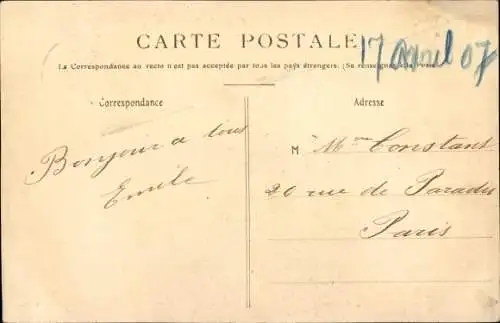 CARTE POSTALE
17 avril 07
La Correspondance au recto n'est pas acceptée par tous les pays étrangers. (Se renseigner à la Poste)
Correspondance
Bonjour a tous
Emile
Adresse
M Mme Constant
20 rue de Paradis
Paris